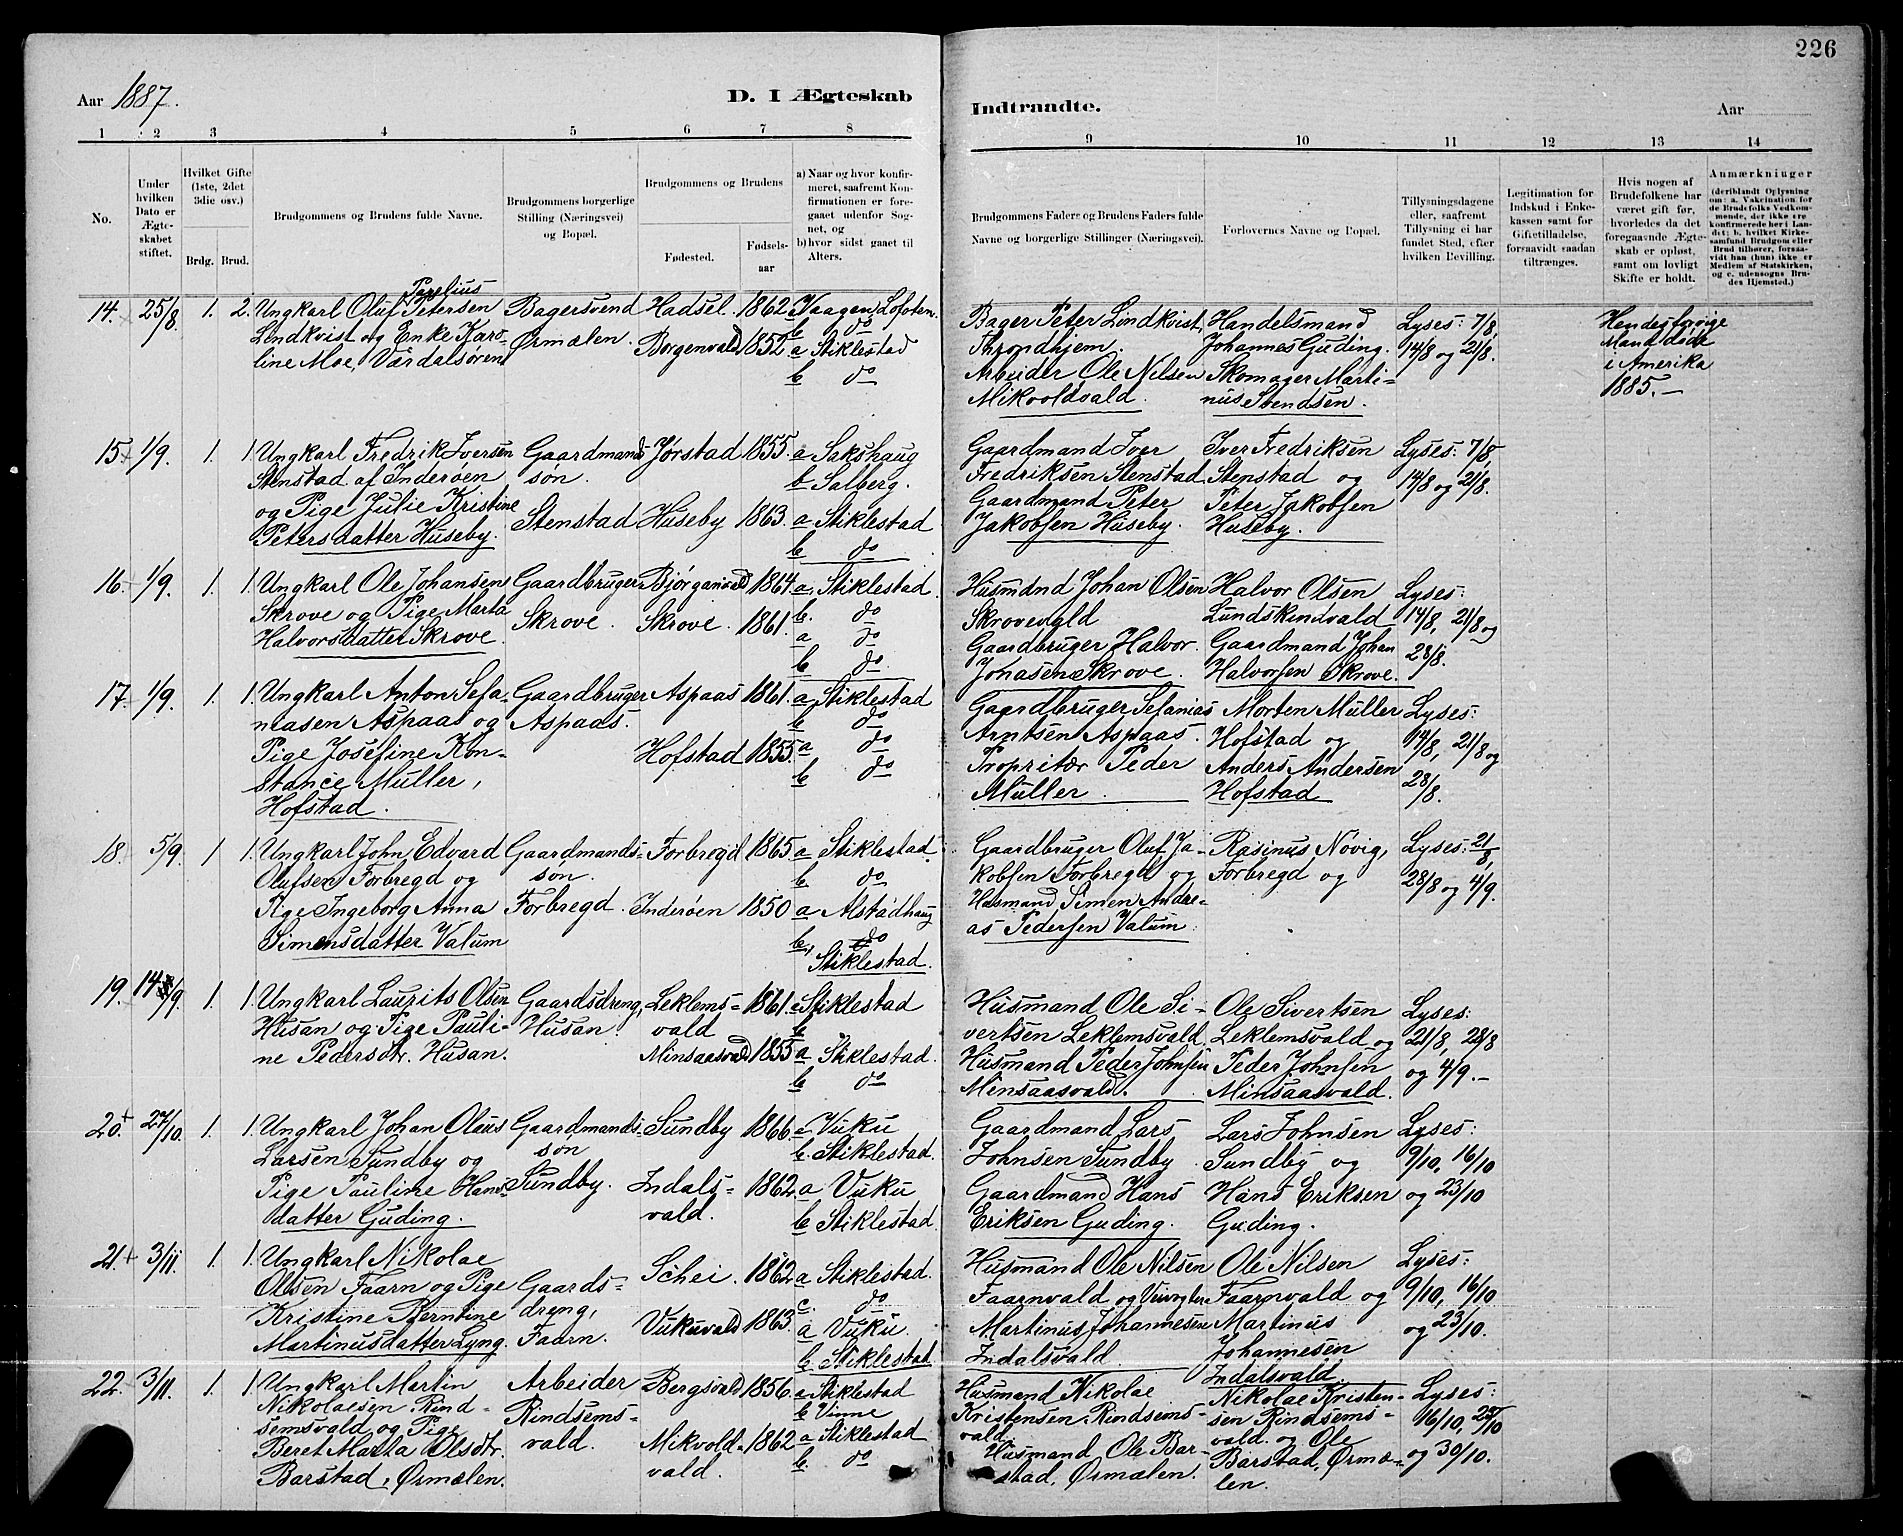 226
Aar 1887.
D. I Ægteskab
Indtraadte.
Aar
1 2 3 4 5 6 7 8
9 10 11 12 13 14
No.
Under hvilken Dato er Ægteskabet stiftet.
Hvilket Gifte (1ste, 2det 3die osv.)
Brdg. Brud.
Brudgommens og Brudens fulde Navne.
Brudgommens borgerlige Stilling (Næringsvei) og Bopæl.
Brudgommens og Brudens
Fødested.
Fødsels-aar
a) Naar og hvor konfirmeret, saafremt Konfirmationen er foregaaet udenfor Sognet, og
b) hvor sidst gaaet til Alters.
Brudgommens Faders og Brudens Faders fulde Navne og borgerlige Stillinger (Næringsvei).
Forlovernes Navne og Bopæl.
Tillysningsdagene eller, saafremt Tillysning ei har fundet Sted, efter hvilken Bevilling.
Legitimation for Indskud i Enkekassen samt for Giftetilladelse, forsaavidt saadan tiltrænges.
Hvis nogen af Brudefolkene har været gift før, hvorledes da det foregaaende Ægteskab er opløst, samt om lovligt Skifte er holdt.
Anmærkninger
(deriblandt Oplysning om: a. Vakcination for de Brudefolks Vedkommende, der ikke ere konfirmerede her i Landet; b. hvilket Kirkesamfund Brudgom eller Brud tilhører, forsaavidt han (hun) ikke er Medlem af Statskirken, og c. udensogns Brudes Hjemsted.)
14. 25/8. 1. 2. Ungkarl Oluf Parelius Petersen
Lindkvist og Enke Karoline
Moe, Værdalsøren
Bagersvend
Ørmælen.
Hadsel. 1862 a Vaagen, Lofoten.
b do
Borgenvald 1852 a Stiklestad
b do
Bager Peter Lindkvist,
Throndhjem.
Arbeider Ole Nilsen
Mikvoldvald.
Handelsmand
Johannes Guding.
Skomager Martinus
Svendsen.
Lyses: 7/8,
14/8 og 21/8.
Hendes forrige
Mand døde
i Amerika
1885. —
15 1/9. 1. 1. Ungkarl Fredrik Iversen
Stenstad af Inderøen
og Pige Julie Kristine
Petersdatter Huseby.
Gaardmandssøn.
Stenstad
Jørstad 1855. a Sakshaug
b Salberg.
Huseby 1863. a Stiklestad
b do
Gaardmand Iver
Fredriksen Stenstad
Gaardmand Peter
Jakobsen Huseby.
Iver Fredriksen
Stenstad og
Peter Jakobsen
Huseby.
Lyses: 7/8,
14/8 og 21/8.
16 1/9. 1. 1. Ungkarl Ole Johansen
Skrove og Pige Marta
Halvorsdatter Skrove.
Gaardbruger
Skrove.
Bjørganvald 1864. a, Stiklestad.
b. do
Skrove. 1861. a do
b do
Husmand Johan Olsen
Skrovevald
Gaardbruger Halvor
Johasen Skrove.
Halvor Olsen
Lundskindvald
Gaardmand Johan
Halvorsen Skrove.
Lyses:
14/8, 21/8 og
28/8.
17 1/9. 1. 1. Ungkarl Anton Sefaniasen
Aspaas og
Pige Josefine Konstance
Müller,
Hofstad.
Gaardbruger
Aspaas.
Aspaas 1861. a Stiklestad
b do
Hofstad 1855. a do
b do
Gaardbruger Sefanias
Arntsen Aspaas.
Propritær Peder
Müller.
Morten Müller
Hofstad og
Anders Andersen
Hofstad
Lyses:
14/8, 21/8 og
28/8.
18. 5/9. 1 1. Ungkarl John Edvard
Olufsen Forbregd og
Pige Ingeborg Anna
Simensdatter Valum
Gaardmandssøn.
Forbregd.
Forbregd 1865 a Stiklestad.
b do
Inderøen 1850 a Alstadhaug
b, do
Stiklestad.
Gaardbruger Oluf Jakobsen
Forbregd og
Husmand Simen Andreas
Pedersen Valum.
Rasinus Növig,
Forbregd og
Lyses: 21/8,
28/8 og 4/9.
19. 14/9. 1 1. Ungkarl Laurits Olsen
Husan og Pige Pauline
Pedersdtr. Husan.
Gaardsdreng,
Husan.
Leklemsvald 1861. a Stiklestad
b
Minsaasvald 1855 a Stiklestad.
b do
Husmand Ole Sivertsen
Leklemsvald.
Husmand Peder Johnsen
Minsaasvald.
Ole Sivertsen
Leklemsvald og
Peder Johnsen
Minsaasvald.
Lyses:
21/8, 28/8
og 4/9. —
20. 27/10. 1. 1. Ungkarl Johan Oleus
Larsen Sundby og
Pige Pauline Hansdatter
Guding.
Gaardmandssøn
Sundby.
Sundby 1866 a Vuku
b. Stiklestad.
Indalsvald. 1862 a Vuku
b Stiklestad.
Gaardmand Lars
Johnsen Sundby
Gaardmand Hans
Eriksen Guding.
Lars Johnsen
Sundby og
Hans Eriksen
Guding.
Lyses:
9/10, 16/10
og 23/10
21. 3/11. 1 1. Ungkarl Nikolae
Olsen Faarn og Pige
Kristine Berntine
Martinusdatter Lyng.
Gaardsdreng,
Faarn.
Schei. 1862 a Stiklestad.
do
Vukuvald 1863. a Vuku.
b Stiklestad
Husmand Ole Nilsen
Faarnvald og
Martinus Johannesen
Indalsvald.
Ole Nilsen
Faarnvald og
Martinus
Johannesen
Indalsvald.
Lyses:
9/10, 16/10
og 23/10.
22. 3/11. 1. 1. Ungkarl Martin
Nikolaesen Rindsemsvald
og Pige
Beret Marta Olsdtr.
Barstad, Ørmælen.
Arbeider
Rindsemsvald.
Bergsvald 1856. a Stiklestad
b Vinne
Mikvoldvald. 1862 a Stiklestad
b do
Husmand Nikolae
Kristensen Rindsemsvald.
Husmand Ole Barstad,
Ørmælen.
Nikolae Kristensen
Rindsemsvald. og Ole
Barstad, Ørmælen.
Lyses:
16/10, 23/10
og 30/10.